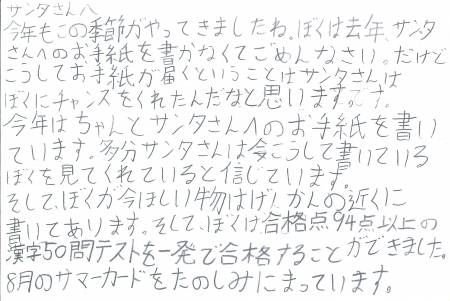 サンタさんへ
今年もこの季節がやってきましたね。ぼくは去年、サンタ
さんへのお手紙を書かなくてごめんなさい。だけど
こうしてお手紙が届くということはサンタさんは
ぼくにチャンスをくれたんだなと思います。
今年はちゃんとサンタさんへのお手紙を書い
ています。多分サンタさんは今こうして書いている
ぼくを見てくれていると信じています。
そして、ぼくが今ほしい物はげんかんの近くに
書いてあります。そして、ぼくは合格点94点以上の
漢字50問テストを一発で合格することができました。
8月のサマーカードをたのしみにまっています。